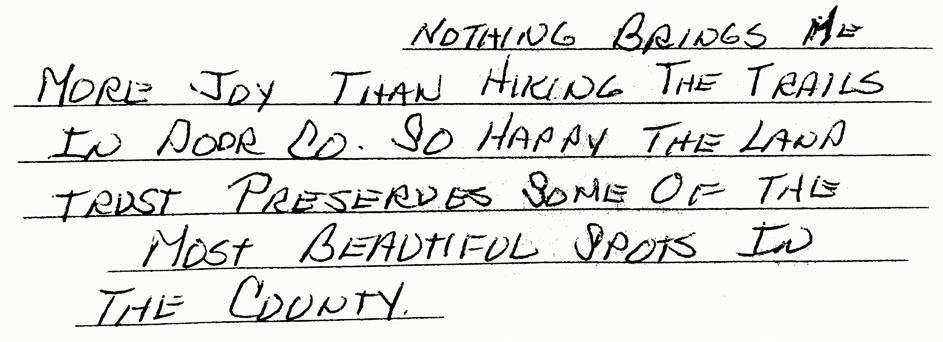 NOTHING BRINGS ME
MORE JOY THAN HIKING THE TRAILS
IN DOOR CO. SO HAPPY THE LAND
TRUST PRESERVES SOME OF THE
MOST BEAUTIFUL SPOTS IN
THE COUNTY.